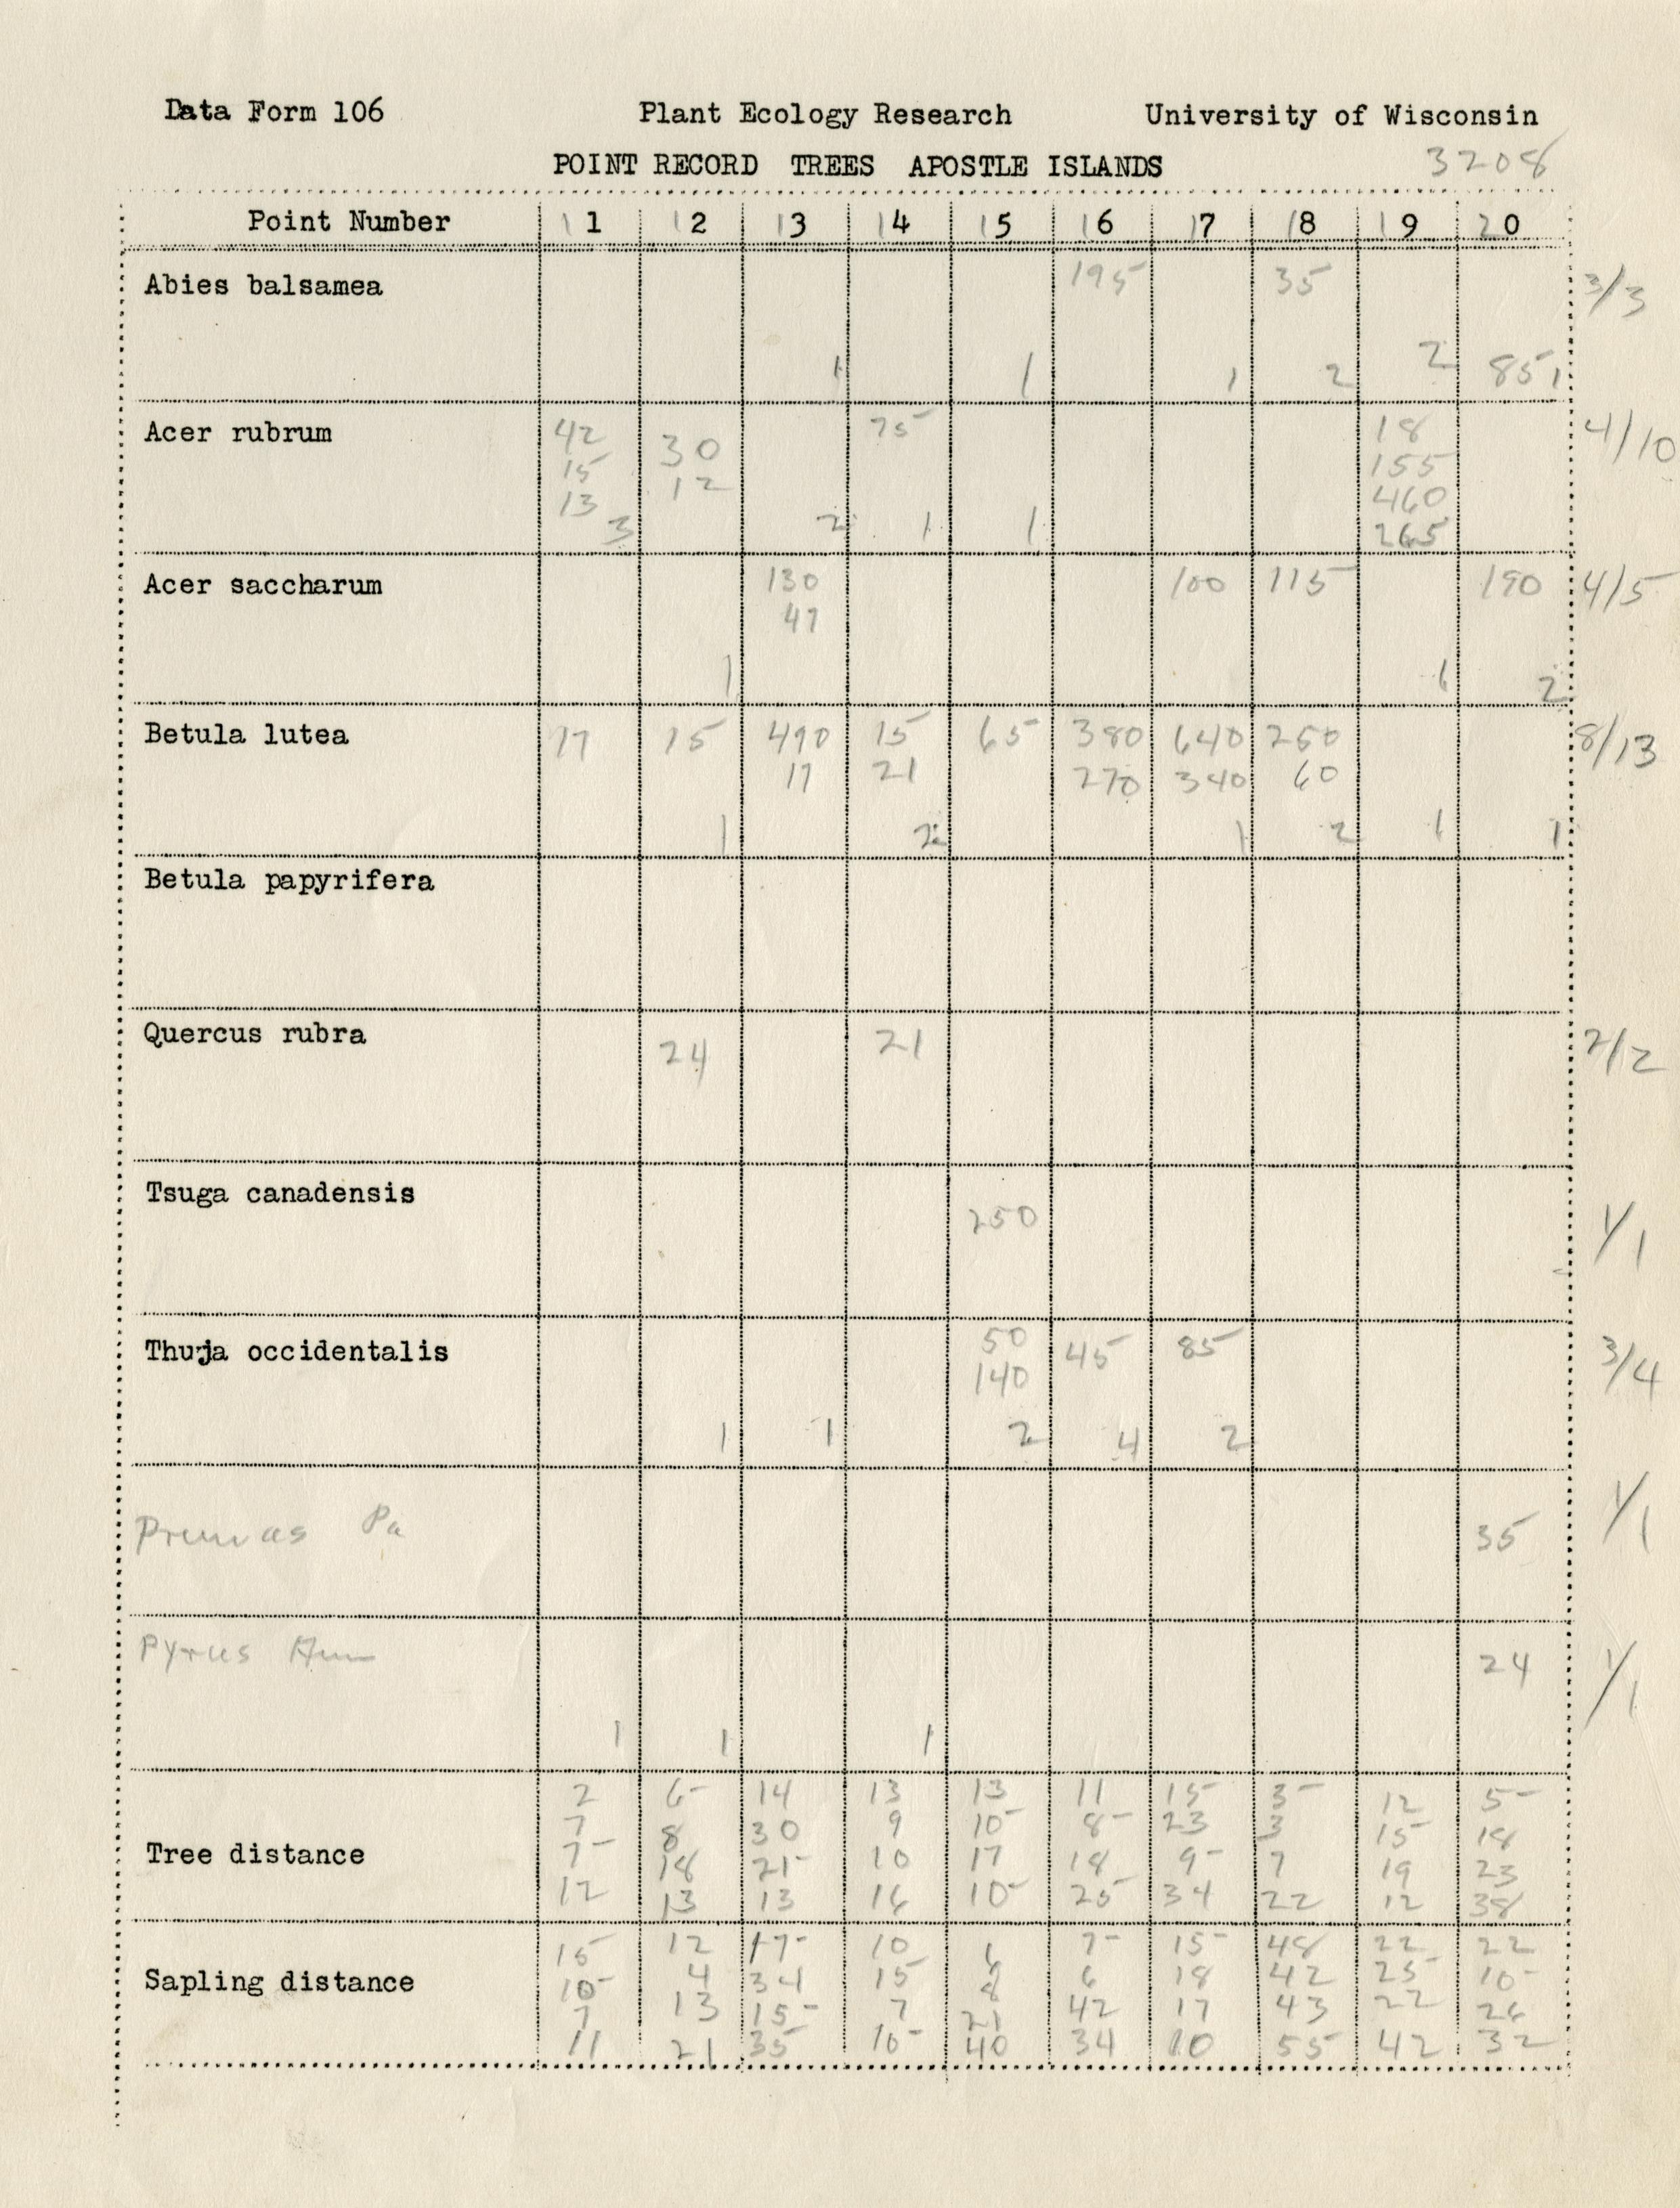 Data Form 106 Plant Ecology Research University of Wisconsin
POINT RECORD TREES APOSTLE ISLANDS 3208
Point Number 11 12 13 14 15 16 17 18 19 20
Abies balsamea 195 35 3/3
1 1 1 2 2 85 1
Acer rubrum 42 30 75 18 4/10
15 12 155
13 460
3 2 1 1 265
Acer saccharum 130 100 115 190 4/5
47
1 1 2
Betula lutea 17 15 490 15 65 380 640 250 8/13
17 21 270 340 60
1 2 1 2 1 1
Betula papyrifera
Quercus rubra 24 21 2/2
Tsuga canadensis 250 1/1
Thuja occidentalis 50 45 85 3/4
140
1 1 2 4 2
Prunus Pa 35 1/1
Pyrus Am 24 1/1
1 1 1
2 6- 14 13 13 11 15- 3- 12 5-
7 8 30 9 10- 8- 23 3 15- 18
Tree distance 7- 18 21- 10 17 18 9- 7 19 23
12 13 13 16 10- 25- 34 22 12 38
15 12 17- 10 6 7- 15- 48 22 22
Sapling distance 10- 4 34 15 8 6 18 42 25- 10-
7 13 15- 7 21 42 17 43 22 26
11 21 35 10- 40 34 10 55 42 32